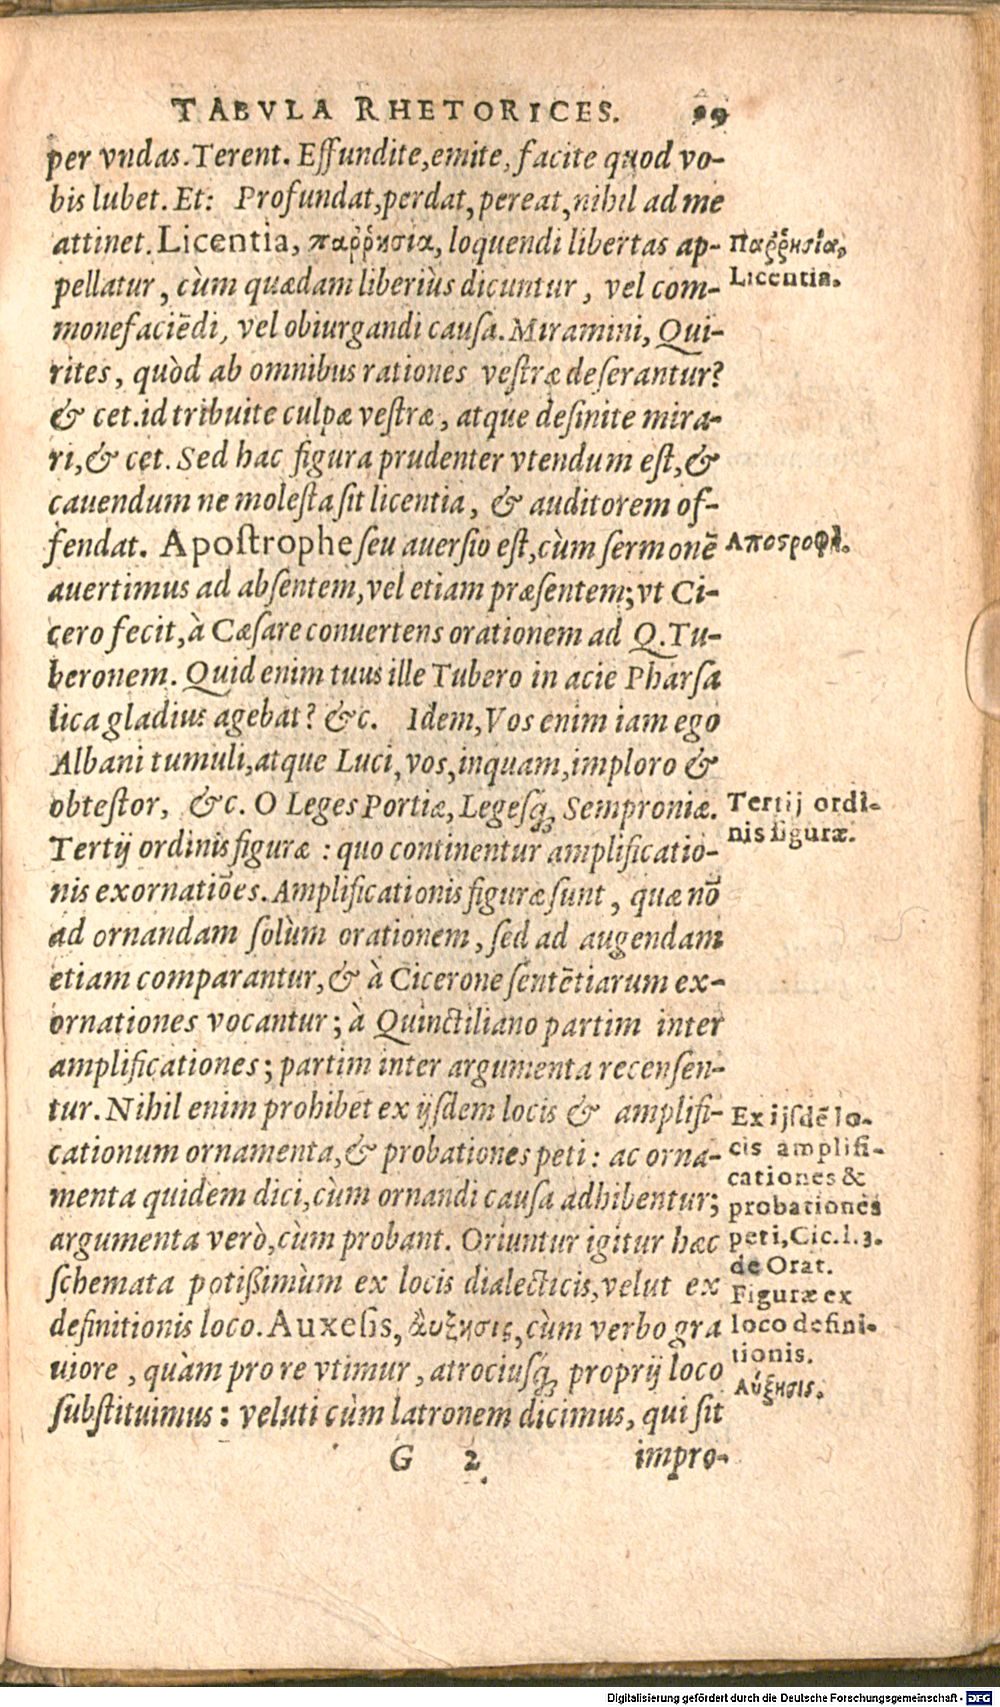 TABVLA RHETORICES. 99
per vndas. Terent. Effundite, emite, facite quod vo-
bis lubet. Et: Profundat, perdat, pereat, nihil ad me
attinet. Licentia, παῤῥησια, loquendi libertas ap-
pellatur, cùm quædam liberiùs dicuntur, vel com-
monefaciēdi, vel obiurgandi causa. Miramini, Qui-
rites, quòd ab omnibus rationes vestræ deserantur?
& cet. id tribuite culpæ vestræ, atque desinite mira-
ri, & cet. Sed hac figura prudenter vtendum est, &
cauendum ne molesta sit licentia, & auditorem of-
fendat. Apostrophe seu auersio est, cùm sermonē
auertimus ad absentem, vel etiam præsentem; vt Ci-
cero fecit, à Cæsare conuertens orationem ad Q. Tu-
beronem. Quid enim tuus ille Tubero in acie Pharsa
lica gladius agebat? &c. Idem, Vos enim iam ego
Albani tumuli, atque Luci, vos, inquam, imploro &
obtestor, &c. O Leges Portiæ, Legesq́; Semproniæ.
Tertij ordinis figuræ: quo continentur amplificatio-
nis exornatiōes. Amplificationis figuræ sunt, quæ nō
ad ornandam solùm orationem, sed ad augendam
etiam comparantur, & à Cicerone sentētiarum ex-
ornationes vocantur; à Quinctiliano partim inter
amplificationes; partim inter argumenta recensen-
tur. Nihil enim prohibet ex ijsdem locis & amplifi-
cationum ornamenta, & probationes peti: ac orna-
menta quidem dici, cùm ornandi causa adhibentur;
argumenta verò, cùm probant. Oriuntur igitur hæc
schemata potißimùm ex locis dialecticis, velut ex
definitionis loco. Auxesis, ἄυξησις, cùm verbo gra
uiore, quàm pro re vtimur, atrociusq́; proprij loco
substituimus: veluti cùm latronem dicimus, qui sit
G 2 impro-
Παῤῥησία,
Licentia.
Αποστροφὴ.
Tertij ordi-
nis figuræ.
Ex ijsdē lo-
cis amplifi-
cationes &
probationes
peti, Cic. l. 3.
de Orat.
Figuræ ex
loco defini-
tionis.
Αύξησις.
Digitalisierung gefördert durch die Deutsche Forschungsgemeinschaft - DFG